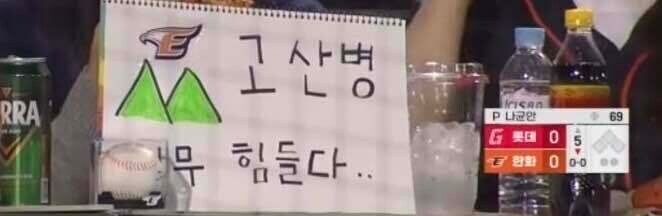 E
고산병
무 힘들다..
RRA
P 나균안 69
G 롯데 0 5
E 한화 0 0-0